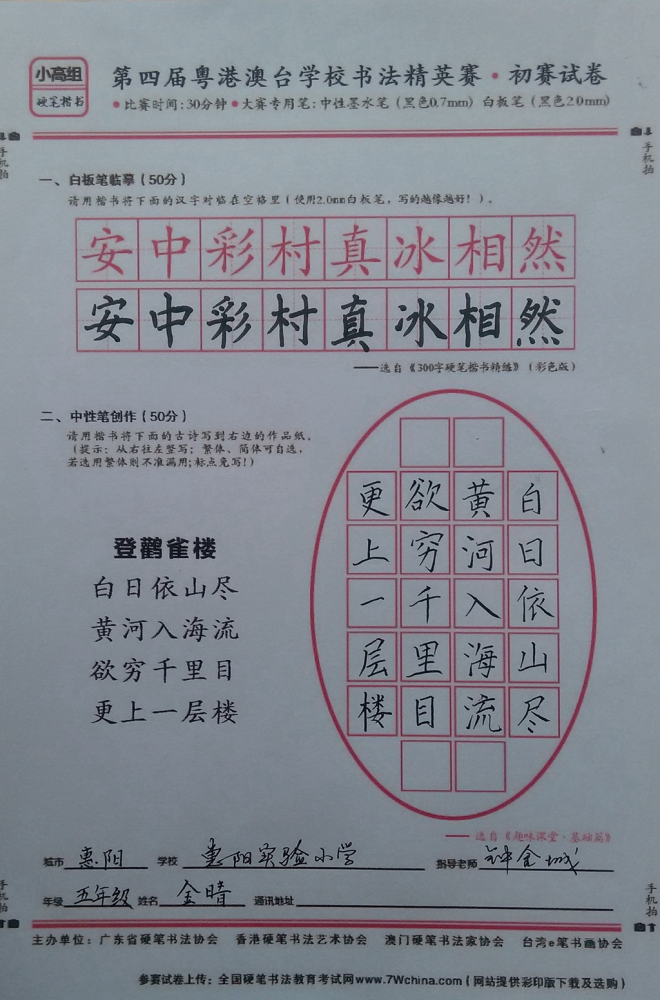 小高组
硬笔楷书
第四届粤港澳台学校书法精英赛·初赛试卷
●比赛时间:30分钟●大赛专用笔:中性墨水笔(黑色0.7mm) 白板笔(黑色2.0mm)
手机拍
手机拍
一、白板笔临摹(50分)
请用楷书将下面的汉字对临在空格里(使用2.0mm白板笔,写的越像越好!)。
安中彩村真冰相然
安中彩村真冰相然
——选自《300字硬笔楷书精练》(彩色版)
二、中性笔创作(50分)
请用楷书将下面的古诗写到右边的作品纸。
(提示:从右往左竖写;繁体、简体可自选,
若选用繁体则不准漏用;标点免写!)
登鹳雀楼
白日依山尽
黄河入海流
欲穷千里目
更上一层楼
白日依山尽
黄河入海流
欲穷千里目
更上一层楼
——选自《趣味课堂·基础篇》
城市 惠阳 学校 惠阳实验小学 指导老师 钟金城
年级 五年级 姓名 金晴 通讯地址
手机拍
手机拍
主办单位:广东省硬笔书法协会 香港硬笔书法艺术协会 澳门硬笔书法家协会 台湾e笔书画协会
参赛试卷上传:全国硬笔书法教育考试网www.7Wchina.com(网站提供彩印版下载及选购)